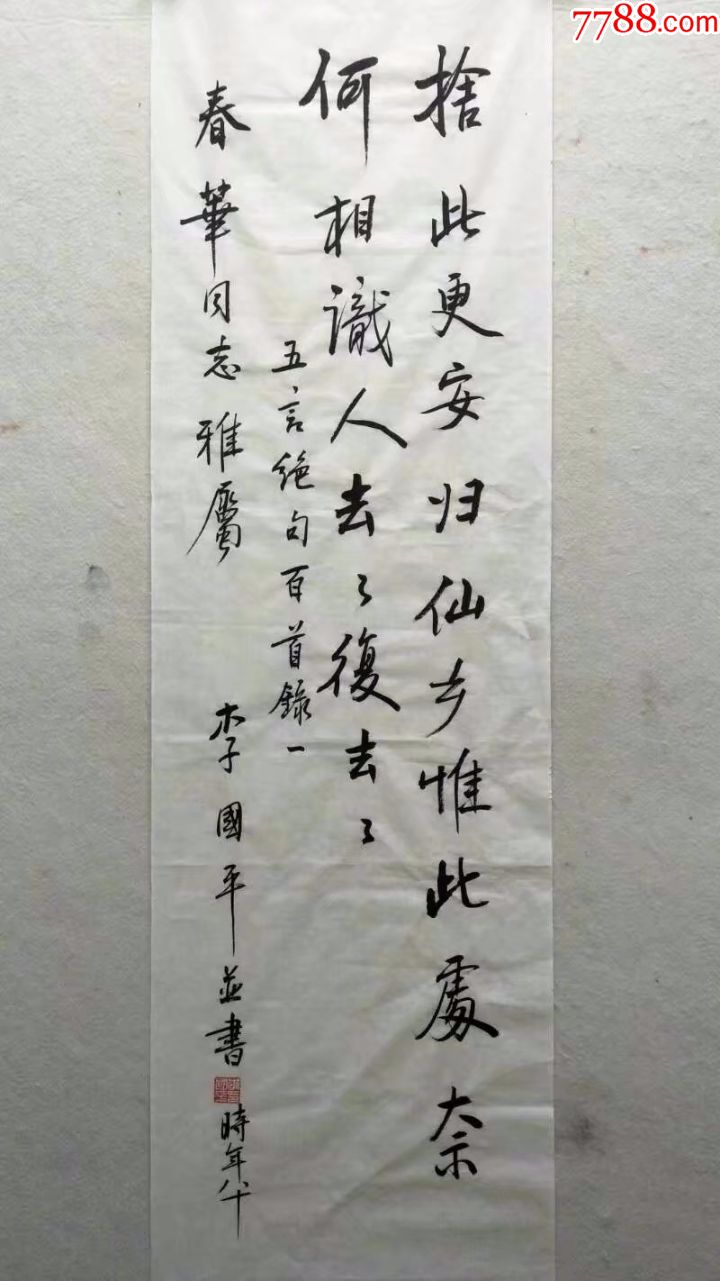 7788.com
捨此更安归仙乡惟此處奈
何相識人去々復去々
五言绝句百首錄一
春華同志雅屬
李國平並書
時年八十